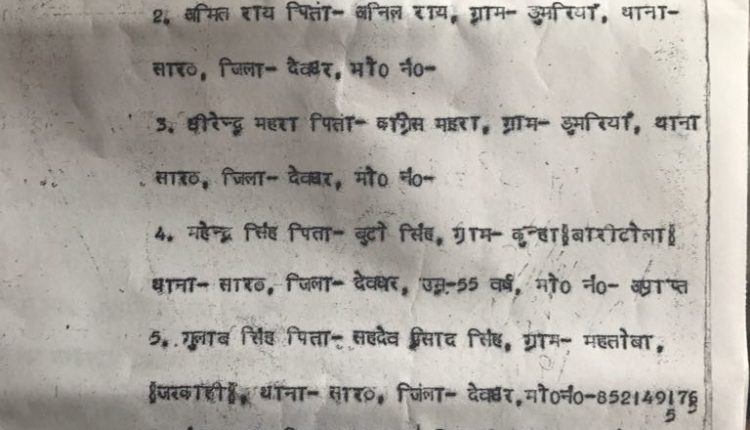 2. अमित राय पिता- अनिल राय, ग्राम- डुमरियाँ, थाना-
सारठ, जिला- देवघर, मो0 नं0-
3. धीरेन्द्र महरा पिता- कांग्रेस महरा, ग्राम- डुमरियाँ, थाना
सारठ, जिला- देवघर, मो0 नं0-
4. महेन्द्र सिंह पिता- बुटो सिंह, ग्राम- कुन्हा{बारीटोला}
थाना- सारठ, जिला- देवघर, उम्र-55 वर्ष, मो0 नं0- अप्राप्त
5. गुलाब सिंह पिता- सहदेव प्रसाद सिंह, ग्राम- महतोबा,
{जरकाही}, थाना- सारठ, जिला- देवघर,